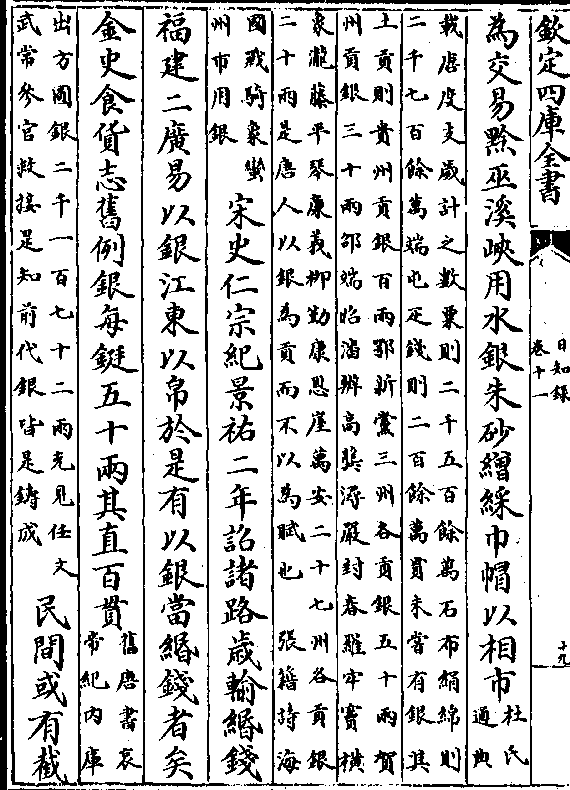 欽定四庫全書
日知錄
卷十一
十九
為交易黔巫溪峽用水銀朱砂繒綵巾帽以相市杜氏通典
載唐度支歲計之數粟則二千五百餘萬石布絹綿則
二千七百餘萬端屯疋錢則二百餘萬貫未嘗有銀其
土貢則貴州貢銀百兩鄂新黨三州各貢銀五十兩賀
州貢銀三十兩邵端昭潘辨高龔潯嚴封春羅牢竇橫
象瀧藤平琴廉義柳勤康恩崖萬安二十七州各貢銀
二十兩是唐人以銀為貢而不以為賦也 張籍詩海
國戰騎象蠻州市用銀 宋史仁宗紀景祐二年詔諸路歲輸緡錢
福建二廣易以銀江東以帛於是有以銀當緡錢者矣
金史食貨志舊例銀每鋌五十兩其直百貫舊唐書哀帝紀內庫
出方圓銀二千一百七十二兩充見任文武常參官救接是知前代銀皆是鑄成 民間或有截